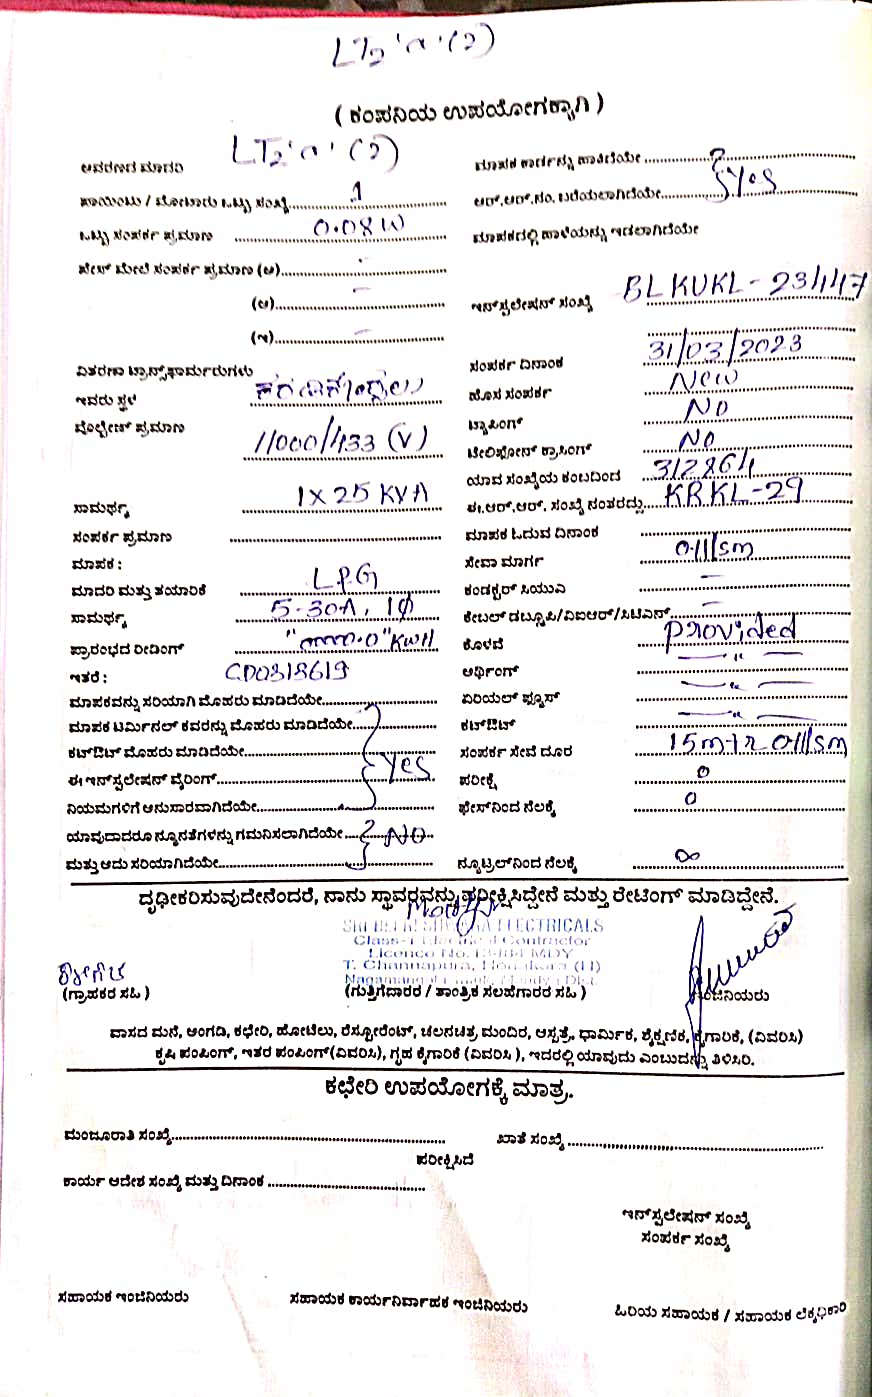 LT2 'a' (2)
( ಕಂಪನಿಯ ಉಪಯೋಗಕ್ಕಾಗಿ )
ಆವರಣದ ಮಾದರಿ LT2 'a' (2)
ಮಾಪಕ ಕಾರ್ಡನ್ನು ಹಾಕಿದೆಯೇ
ಪಾಯಿಂಟು / ಮೋಟಾರು ಒಟ್ಟು ಸಂಖ್ಯೆ 1
ಆರ್.ಆರ್.ನಂ. ಬರೆಯಲಾಗಿದೆಯೇ Yes
ಒಟ್ಟು ಸಂಪರ್ಕ ಪ್ರಮಾಣ 0.08 W
ಮಾಪಕದಲ್ಲಿ ಹಾಳೆಯನ್ನು ಇಡಲಾಗಿದೆಯೇ
ಪೇಸ್ ಮೇಲೆ ಸಂಪರ್ಕ ಪ್ರಮಾಣ (ಅ) -
(ಆ) -
ಇನ್‌ಸ್ಟಲೇಷನ್ ಸಂಖ್ಯೆ BLKUKL-23/1/47
(ಇ) -
ವಿತರಣಾ ಟ್ರಾನ್ಸ್‌ಫಾರ್ಮರುಗಳು
ಸಂಪರ್ಕ ದಿನಾಂಕ 31/03/2023
ಇವರು ಸ್ಥಳ
ಹೊಸ ಸಂಪರ್ಕ New
ವೊಲ್ಟೇಜ್ ಪ್ರಮಾಣ 11000/433 (V)
ಟ್ಯಾಪಿಂಗ್ NO
ಟೇಲಿಫೋನ್ ಕ್ರಾಸಿಂಗ್ NO
ಯಾವ ಸಂಖ್ಯೆಯ ಕಂಬದಿಂದ
ಸಾಮರ್ಥ್ಯ 1 X 25 KVA
ಈ.ಆರ್.ಆರ್. ಸಂಖ್ಯೆ ನಂತರದ್ದು KRKL-29
ಸಂಪರ್ಕ ಪ್ರಮಾಣ
ಮಾಪಕ ಓದುವ ದಿನಾಂಕ
ಮಾಪಕ :
ಸೇವಾ ಮಾರ್ಗ O.H/Sm
ಮಾದರಿ ಮತ್ತು ತಯಾರಿಕೆ L.P.G
ಕಂಡಕ್ಟರ್ ಸಿಯುವಿ -
ಸಾಮರ್ಥ್ಯ 5-30A, 1ф
ಕೇಬಲ್ ಡಬ್ಲೂಪಿ/ವಿಐಆರ್/ಸಿಟಿಎಸ್ -
ಪ್ರಾರಂಭದ ರೀಡಿಂಗ್ "00000.0" KWH
ಕೊಳವೆ Provided
ಇತರೆ : CD0318619
ಅರ್ಥಿಂಗ್ — " —
ಮಾಪಕವನ್ನು ಸರಿಯಾಗಿ ಮೊಹರು ಮಾಡಿದೆಯೇ
ಏರಿಯಲ್ ಫ್ಯೂಸ್ — " —
ಮಾಪಕ ಟರ್ಮಿನಲ್ ಕವರನ್ನು ಮೊಹರು ಮಾಡಿದೆಯೇ
ಕಟ್ಔಟ್ — " —
ಕಟ್ಔಟ್ ಮೊಹರು ಮಾಡಿದೆಯೇ
ಸಂಪರ್ಕ ಸೇವೆ ದೂರ 15mtr O.H/Sm
ಈ ಇನ್‌ಸ್ಟಲೇಷನ್ ವೈರಿಂಗ್ Yes
ಪರೀಕ್ಷೆ 0
ನಿಯಮಗಳಿಗೆ ಅನುಸಾರವಾಗಿದೆಯೇ
ಫೇಸ್‌ನಿಂದ ನೆಲಕ್ಕೆ 0
ಯಾವುದಾದರೂ ನ್ಯೂನತೆಗಳನ್ನು ಗಮನಿಸಲಾಗಿದೆಯೇ NO
ಮತ್ತು ಅದು ಸರಿಯಾಗಿದೆಯೇ
ನ್ಯೂಟ್ರಲ್‌ನಿಂದ ನೆಲಕ್ಕೆ ∞
ದೃಢೀಕರಿಸುವುದೇನೆಂದರೆ, ನಾನು ಸ್ಥಾವರವನ್ನು ಪರೀಕ್ಷಿಸಿದ್ದೇನೆ ಮತ್ತು ರೇಟಿಂಗ್ ಮಾಡಿದ್ದೇನೆ.
ELECTRICALS
Class-1 Electrical Contractor
Licence No.
T. Channapura, Honakere (H)
(ಗ್ರಾಹಕರ ಸಹಿ )
(ಗುತ್ತಿಗೆದಾರರ / ತಾಂತ್ರಿಕ ಸಲಹೆಗಾರರ ಸಹಿ )
ಇಂಜಿನಿಯರು
ವಾಸದ ಮನೆ, ಅಂಗಡಿ, ಕಛೇರಿ, ಹೋಟೆಲು, ರೆಸ್ಟೋರೆಂಟ್, ಚಲನಚಿತ್ರ ಮಂದಿರ, ಆಸ್ಪತ್ರೆ, ಧಾರ್ಮಿಕ, ಶೈಕ್ಷಣಿಕ, ಕೈಗಾರಿಕೆ, (ವಿವರಿಸಿ)
ಕೃಷಿ ಪಂಪಿಂಗ್, ಇತರ ಪಂಪಿಂಗ್(ವಿವರಿಸಿ), ಗೃಹ ಕೈಗಾರಿಕೆ (ವಿವರಿಸಿ ), ಇದರಲ್ಲಿ ಯಾವುದು ಎಂಬುದನ್ನು ತಿಳಿಸಿರಿ.
ಕಛೇರಿ ಉಪಯೋಗಕ್ಕೆ ಮಾತ್ರ.
ಮಂಜೂರಾತಿ ಸಂಖ್ಯೆ
ಖಾತೆ ಸಂಖ್ಯೆ
ಪರೀಕ್ಷಿಸಿದೆ
ಕಾರ್ಯ ಆದೇಶ ಸಂಖ್ಯೆ ಮತ್ತು ದಿನಾಂಕ
ಇನ್‌ಸ್ಟಲೇಷನ್ ಸಂಖ್ಯೆ
ಸಂಪರ್ಕ ಸಂಖ್ಯೆ
ಸಹಾಯಕ ಇಂಜಿನಿಯರು
ಸಹಾಯಕ ಕಾರ್ಯನಿರ್ವಾಹಕ ಇಂಜಿನಿಯರು
ಹಿರಿಯ ಸಹಾಯಕ / ಸಹಾಯಕ ಲೆಕ್ಕಾಧಿಕಾರಿ